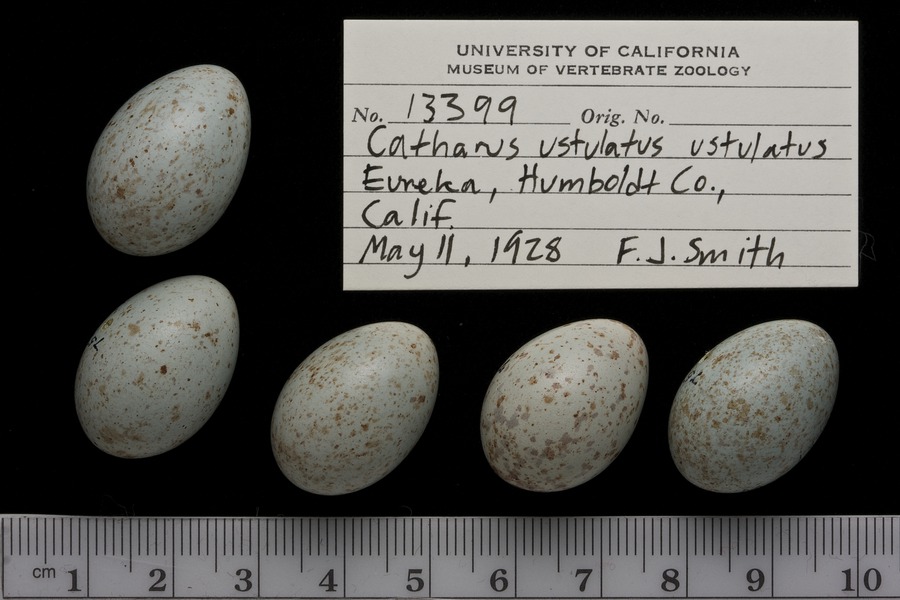 UNIVERSITY OF CALIFORNIA
MUSEUM OF VERTEBRATE ZOOLOGY
No. 13399 Orig. No.
Catharus ustulatus ustulatus
Eureka, Humboldt Co.,
Calif.
May 11, 1928 F.J. Smith
cm 1 2 3 4 5 6 7 8 9 10